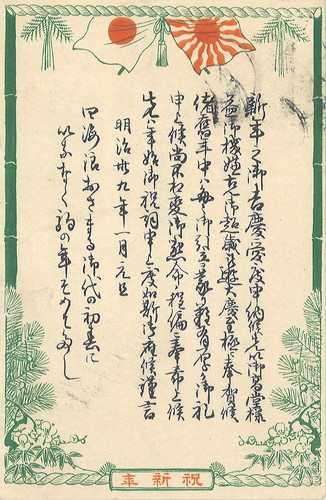 新年之御吉慶愛度申納候先以御尊堂様
益御機嫌克御超歳被遊大慶至極ニ奉賀候
舊年中ハ毎々御引立を蒙り難有厚く御礼
申上候尚不相変御懇命程偏ニ奉希上候
先ハ年始御祝詞申上度如斯御座候謹言
明治卅九年一月元旦
四海浪おさまる御代の初春に
の年
祝新年